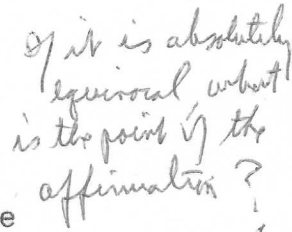 If it is absolutely
equivocal, what
is the point of the
affirmation?
e